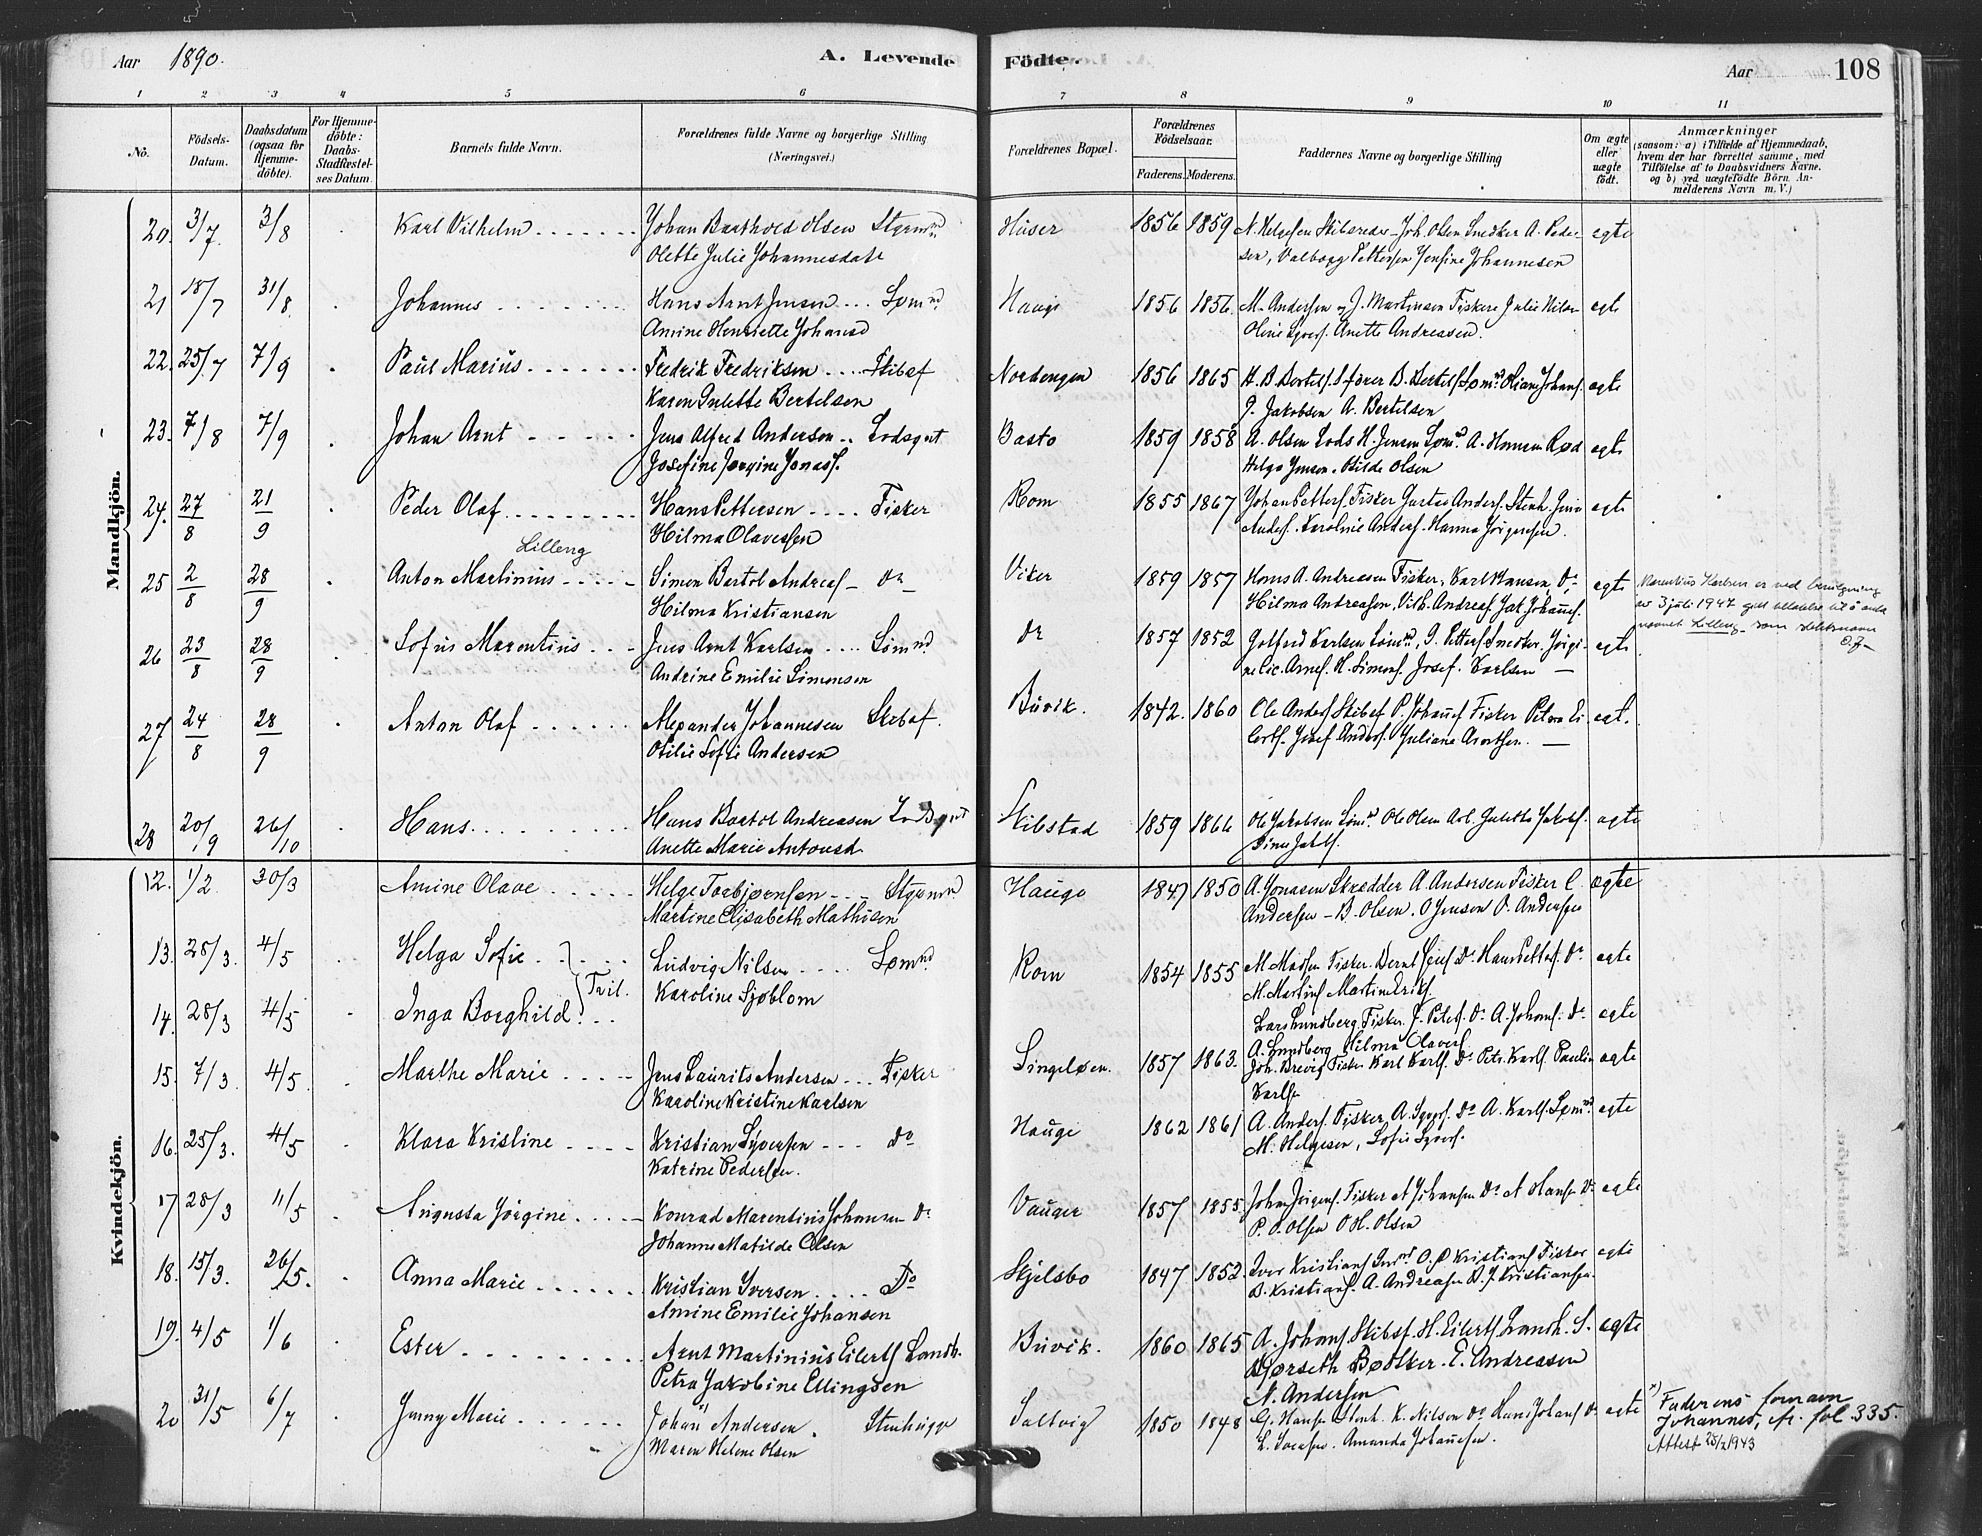 Aar 1890. A. Levende Födte. Aar 108
1 2 3 4 5 6 7 8 9 10 11
No. Födsels-Datum. Daabsdatum (ogsaa for Hjemmedöbte). For Hjemmedöbte: Daabs-Stadfæstelses Datum. Barnets fulde Navn. Forældrenes fulde Navne og borgerlige Stilling (Næringsvei.) Forældrenes Bopæl. Forældrenes Födselsaar. Faderens. Moderens. Faddernes Navne og borgerlige Stilling Om ægte eller uægte födt. Anmærkninger (saasom: a) i Tilfælde af Hjemmedaab, hvem der har forrettet samme, med Tilföielse af to Daabsvidners Navne. og b) ved uægtefödte Börn, Anmelderens Navn m. V.)
Mandkjön.
20. 3/7 3/8 Karl Vilhelm Johan Barthold Olsen Styrmd. Huser 1856 1859 N. Helgesen Skibsreder Joh. Olsen Snedker A. Peder- egte
Olette Julie Johannesdatt sen, Valborg Pettersen Jensine Johannesen
21 18/7 31/8. Johannes Hans Arnt Jensen Sømd. Hauge 1856 1856. M. Andersen og J. Martinsen Fiskere Julie egte
Amine Henriette Johansd Oline Anette Andreassen.
22. 25/7 7/9 Paul Marius Fredrik Fredriksen Skibsf Nordengen 1856 1865 H. B. Bertels. B. Bertels Sømd. egte
Karen Julette Bertelsen J. Jakobsen A. Bertelsen
23. 7/8 7/9 Johan Arnt Jens Alfred Anderson Lodsgut Basto 1859 1858 A. Olsen Lods H. Jensen Sømd. A. Hansen egte
Josefine Jørgine Jonass. Helga Jensen. Otilde Olsen
24. 27/8 21/9 Peder Olaf Hans Pettersen Fisker Rom 1855 1867 Johan Petters. Fisker Gustav Anders. Stenh. egte
Hilma Olavessen Anders. Karoline Anders. Hanna Jørgensen.
25 2/8 28/9 Anton Martinius Lilleng Simon Bertol Andreas Do Viker 1859 1857 Hans A. Andreasen Fisker, Karl Hansen, Do egte
Hilma Kristiansen Hilma Andreasen, Vilh. Andreas. Jak. Johans.
Marentius Karlsen er ved bevilgning
av 3 juli 1947 gitt tillatelse til å anta
navnet Lilleng som slektsnavn
26 23/8 28/9 Sofus Marentius Jens Arnt Karlsen Sømnd do 1857 1852 Gotfred Karlsen Sømd., G. Petters Snedker. egte
Andrine Emilie Simonsen H. Simons. Josef. Karlsen
27 24/8 28/9 Anton Olaf Alexander Johannesen Skibsf. Buvik. 1842. 1860 Ole Anders Skibsf P. Johans Fisker Petra egt.
Otilie Sofie Andersen Josef Anders. Juliane
28 20/9 26/10 Hans Hans Bartol Andreasen Lodsgut Skibstad 1859 1866 Ole Jakobsen Sømd. Ole Olsen Julette Jakobs. egte
Anette Marie Antonsd
Kvindekjön.
12. 1/2. 30/3 Amine Olave Helge Torbjørnsen Styrmd Hauge 1847 1850 A. Jonasen Skrædder A. Andersen Fisker C. ægte
Martine Elisabeth Mathisen Andersen – B. Olsen. O Jensen O. Andersen
13. 28/3. 4/5 Helga Sofie } Tvil. Ludvig Nilsen Sømnd. Rom 1854 1855 M. Madsen Fisker. Bernt Do Hans Petters. Do egte
Karoline Sjøblom M. Martins Martin Eriks.
14. 28/3 4/5 Inga Borghild. Lars Lundberg. Fisker. J. Peters. Do A. Johans: Do egte
A. Lundberg Hilma Olaves.
15. 7/3. 4/5 Marthe Marie Jens Laurits Andersen Fisker Singeløen. 1857 1863. Joh. Brevig Fisker Karl Karls. Do Petr. Karls. Paulin egte
Karoline Kristine Karlsen Karlse
16. 25/3. 4/5 Klara Kristine Kristian Syversen do Hauge 1862 1861 A. Anders. Fisker. A. Do A. Karls. Sømd. egte
Katrine Pedersen. M. Helgesen,
17 28/3 11/5 Augusta Jørgine Konrad Marentius Johansen Do Vauger 1857 1855. Johan Jørgens. Fisker A Johansen Do A Hansen Do egte
Johanne Matilde Olsen P. O. Olsen O H. Olsen
18. 15/3. 26/5. Anna Marie Kristian Iversen Do Skjelsbo 1847 1852. Iver Kristians O. P Kristians Fisker egte
Amine Emilie Johansen B. Kristians. A. Andreasen Kristiansen.
19. 4/5 1/6 Ester Arnt Martinius Eilerts Landh. Buvik. 1860 1865 A. Johans Skibsf. H. Eilerts Landh. S. egte
Petra Jakobine Ellingsen Bødtker. E. Andreassen
N. Andersen
20 31/5 6/7 Jenny Marie Johan x) Andersen. Stenhugger Saltvig 1850 1848 G. Hansen Stenh. K. Nilsen Do Hans Johans Do egte
Maren Helene Olsen L. Amanda Johansen.
x) Faderens fornavn
Johannes, fr. fol. 335.
Attest 25/2 1943